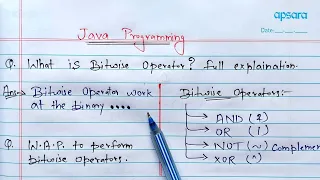 apsara
Date:
Java Programming
Q. What is Bitwise Operator? full explaination.
Ans→ Bitwise Operator work
at the binary ....
Q. W.A.P. to perform
bitwise operators.
Bitwise Operators:-
AND (&)
OR (|)
NOT (~) Complement
XOR (^)